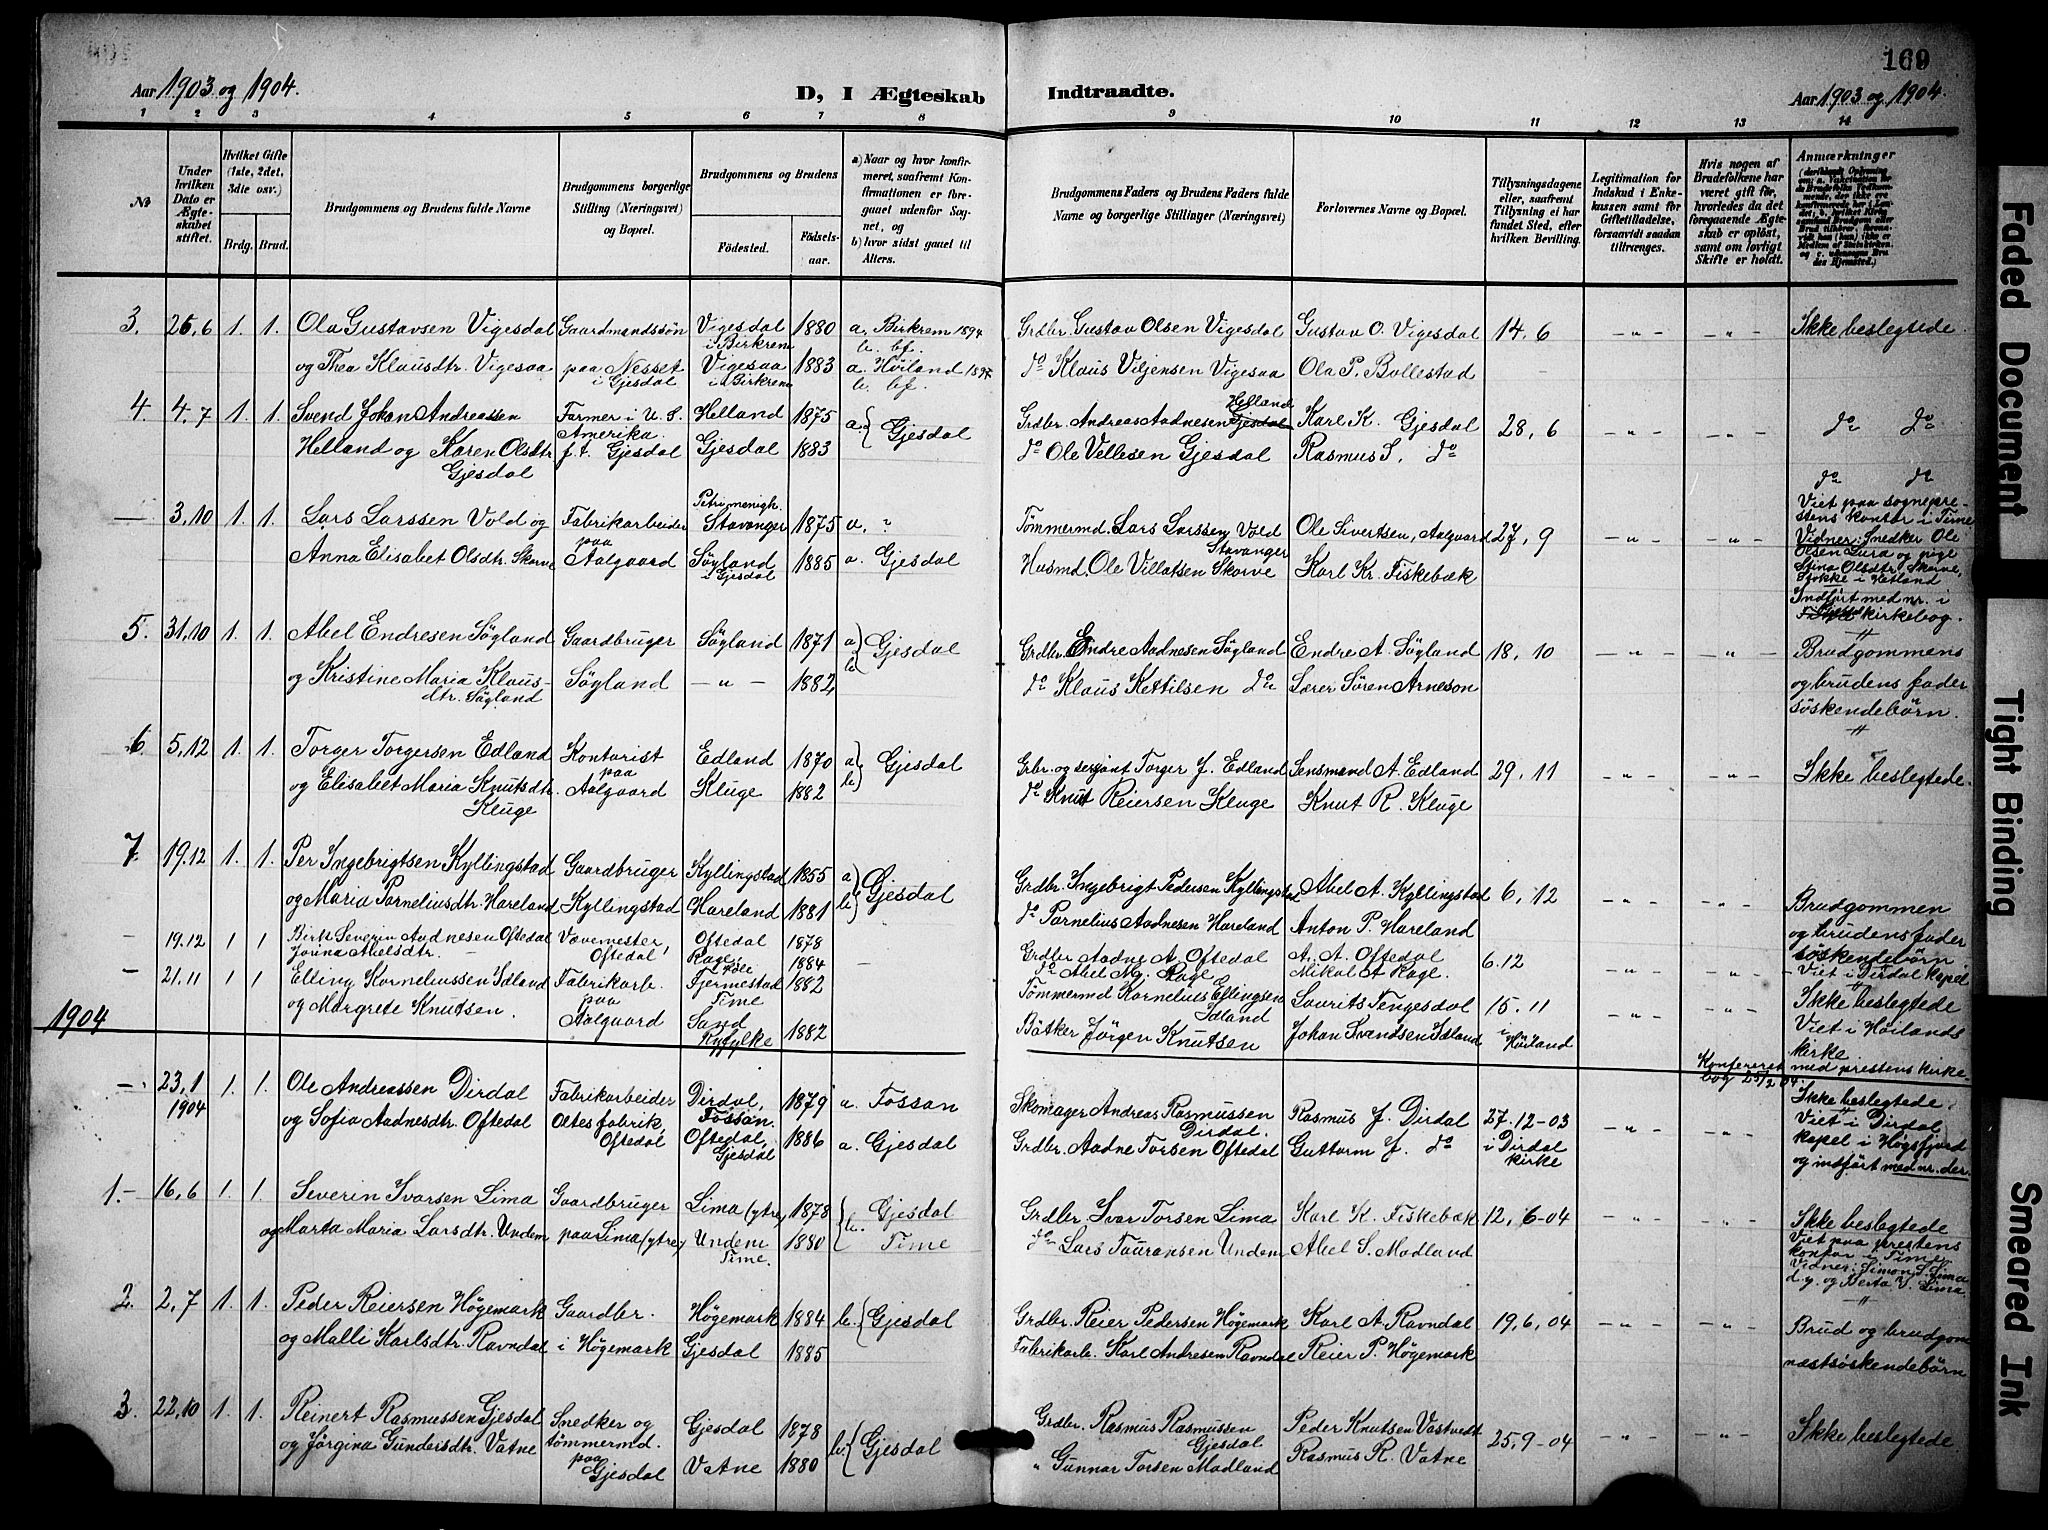 169
Aar 1903 og 1904.
D, I Ægteskab Indtraadte.
Aar 1903 og 1904.
1 2 3 4 5 6 7 8 9 10 11 12 13 14
No
Under hvilken Dato er Ægteskabet stiftet.
Hvilket Gifte (1ste, 2det, 3die osv.)
Brdg. Brud.
Brudgommens og Brudens fulde Navne
Brudgommens borgerlige Stilling (Næringsvei) og Bopæl.
Brudgommens og Brudens
Födested. Födselsaar.
a) Naar og hvor konfirmeret, saafremt Konfirmationen er foregaaet udenfor Sognet, og
b) hvor sidst gaaet til Alters.
Brudgommens Faders og Brudens Faders fulde Navne og borgerlige Stillinger (Næringsvei)
Forlovernes Navne og Bopæl.
Tillysningsdagene eller, saafremt Tillysning ei har fundet Sted, efter hvilken Bevilling.
Legitimation for Indskud i Enkekassen samt for Giftetilladelse, forsaavidt saadan tiltrænges.
Hvis nogen af Brudefolkene har været gift för, hvorledes da det foregaaende Ægteskab er oplöst, samt om lovligt Skifte er holdt.
Anmærkninger
3. 26,6 1. 1. Ola Gustavsen Vigesdal Gaardmandssön Vigesdal i Birkrem 1880 a. Birkrem 1894 b. bf. Grdbr. Gustav Olsen Vigesdal Gustav O. Vigesdal 14,6 -"- -"- Ikke beslegtede.
og Thea Klausdtr. Vigesaa paa Nesset i Gjesdal Vigesaa i Birkrem 1883 a. Höiland 1897 b. bf. do Klaus Viljensen Vigesaa Ola P. Bollestad
4. 4,7 1. 1. Svend Johan Andreassen Farmer i U. S. Amerika. Helland 1875 a. Gjesdal Grdbr. Andreas Aadnesen Gjesdal Helland Karl K. Gjesdal 28,6 -"- -"- do do
Helland og Karen Olsdtr. Gjesdal f. t. Gjesdal Gjesdal 1883 do Ole Vellesen Gjesdal Rasmus S. do
— 3,10 1. 1. Lars Larssen Vold og Fabrikarbeider paa Petri menigh. Stavanger 1875 a. " Tömmermd. Lars Larssen Vold Stavanger Ole Sivertsen, Aalgaard 27,9 -"- -"- do do
Anna Elisabet Olsdtr. Skorve Aalgaard Söyland i Gjesdal 1885 a. Gjesdal Husmd. Ole Villatsen Skorve Karl Kr. Fiskebæk
Viet paa sogneprestens kontor i Time
Vidner: Snedker Ole Olsen Lura og pige Stina Olsdtr. Skorve, Stokke i Hetland
Indfört med nr. i kirkebog.
5. 31,10 1. 1. Abel Endresen Söyland Gaardbruger Söyland 1871 a) b) Gjesdal Grdbr. Endre Aadnesen Söyland Endre A. Söyland 18,10 -"- -"- Brudgommens
og Kristine Maria Klausdtr. Söyland Söyland -"- 1882, do Klaus Kettilsen do Lærer Sören Arneson og brudens fader söskendebörn.
6. 5,12 1. 1. Torger Torgersen Edland Kontorist paa Edland 1870 a) b) Gjesdal Grbr. og sersjant Torger J. Edland Lensmand A. Edland 29,11 -"- -"- Ikke beslegtede.
og Elisabet Maria Knutsdtr. Kluge Aalgaard Kluge 1882 do Knut Reiersen Kluge Knut R. Kluge
7. 19.12 1. 1. Per Ingebrigtsen Kyllingstad Gaardbruger Kyllingstad 1855 a) b) Gjesdal Grdbr. Ingebrigt Pedersen Kyllingstad Abel A. Kyllingstad 6,12 -"- -"- Brudgommen
og Maria Parneliusdtr. Hareland Kyllingstad Hareland 1881 do Parnelius Aadnesen Hareland Anton P. Hareland og brudens fader söskendebörn.
— 19.12 1 1 Birk Severin Aadnesen Oftedal Vævemester, Oftedal Oftedal 1878 — Grdbr. Aadne A. Oftedal A. A. Oftedal 6.12 -"- -"- Viet i Dirdal kapel
1884 do Abel Mg. Rage Mikal A Rage.
— 21.11 1 1 Elling Korneliussen Idland Fabrikarb. paa Fjermestad Time 1882 Tömmermd Kornelius Ellingsen Idland Laurits Tengesdal 15.11 i Höiland -"- -"- Ikke beslegtede
og Margrete Knutsen. Aalgaard Sand Ryfylke 1882 Bötker Jörgen Knutsen Johan Svendsen Idland Viet i Höilands kirke.
1904
Konfereret med prestens kirkebog 25/2 04.
— 23,1 1904 1. 1. Ole Andreassen Dirdal Fabrikarbeider Dirdal, Fossan. 1879 a. Fossan Skomager Andreas Rasmussen Dirdal. Rasmus J. Dirdal 27.12-03 -"- -"- Ikke beslegtede.
og Sofia Aadnesdtr. Oftedal Oltesfabrik, Oftedal Oftedal, Gjesdal 1886 a. Gjesdal Grdbr. Aadne Torsen Oftedal Guttorm J. do i Dirdal kirke
Viet i Dirdal kapel i Högsfjord og indfört med nr. der.
1.- 16,6 1. 1. Severin Ivarsen Lima Gaardbruger Lima (ytre) 1878 b. Gjesdal Grdbr. Ivar Torsen Lima Karl K. Fiskebæk 12,6-04 -"- -"- Ikke beslegtede
og Marta Maria Larsdtr. Undem paa Lima (ytre) Undem Time. 1880 Time do Lars Tauransen Undem Abel S. Madland
Viet paa prestens kontor i Time.
Vidner: Simon S. Lima d.y. og Berta V. Lima.
2. 2,7 1. 1. Peder Reiersen Högemark Gaardbr. Högemark 1884 b. Gjesdal Grdbr. Reier Pedersen Högemark Karl A. Ravndal 19,6,04 -"- -"- Brud og brudgom
og Malli Karlsdtr. Ravndal i Högemark Gjesdal 1885 Fabrikarb. Karl Andresen Ravndal Reier P. Högemark næstsöskendebörn
3. 22,10 1. 1. Reinert Rasmussen Gjesdal Snedker og Gjesdal 1878 b. Gjesdal Grdbr. Rasmus Rasmussen Gjesdal Peder Knutsen Vastvedt 25.9-04 -"- -"- Ikke beslegtede
og Jörgina Gundersdtr. Vatne tömmermd. paa Gjesdal Vatne 1880 " Gunnar Torsen Madland Rasmus R. Vatne
Faded Document
Tight Binding
Smeared Ink